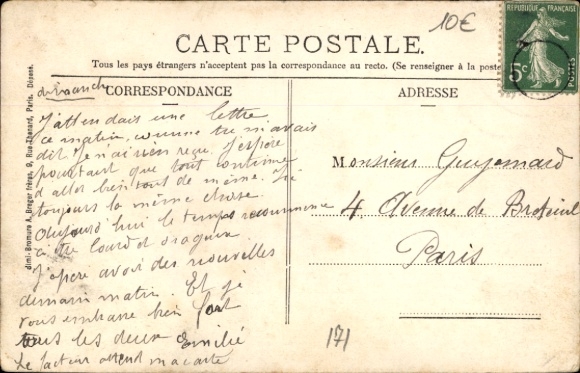 10€
RÉPUBLIQUE FRANÇAISE
5c
POSTES
CARTE POSTALE.
Tous les pays étrangers n'acceptent pas la correspondance au recto. (Se renseigner à la poste
CORRESPONDANCE
ADRESSE
dimanche
J'attendais une lettre
ce matin, comme tu m'avais
dit. Je n'ai rien reçu. J'espère
pourtant que tout continue
d'aller bien tout de même. Ici
toujours la même chose.
Aujourd'hui le temps recommence
à être lourd et orageux
J'espère avoir des nouvelles
demain matin. Et je
vous embrasse bien fort
tous les deux Emilie
Le facteur attend ma carte
Monsieur Guyomard
4 Avenue de Breteuil
Paris
171
Simili-Bromure A. Breger Frères, 9, Rue Thénard, Paris. Déposé.